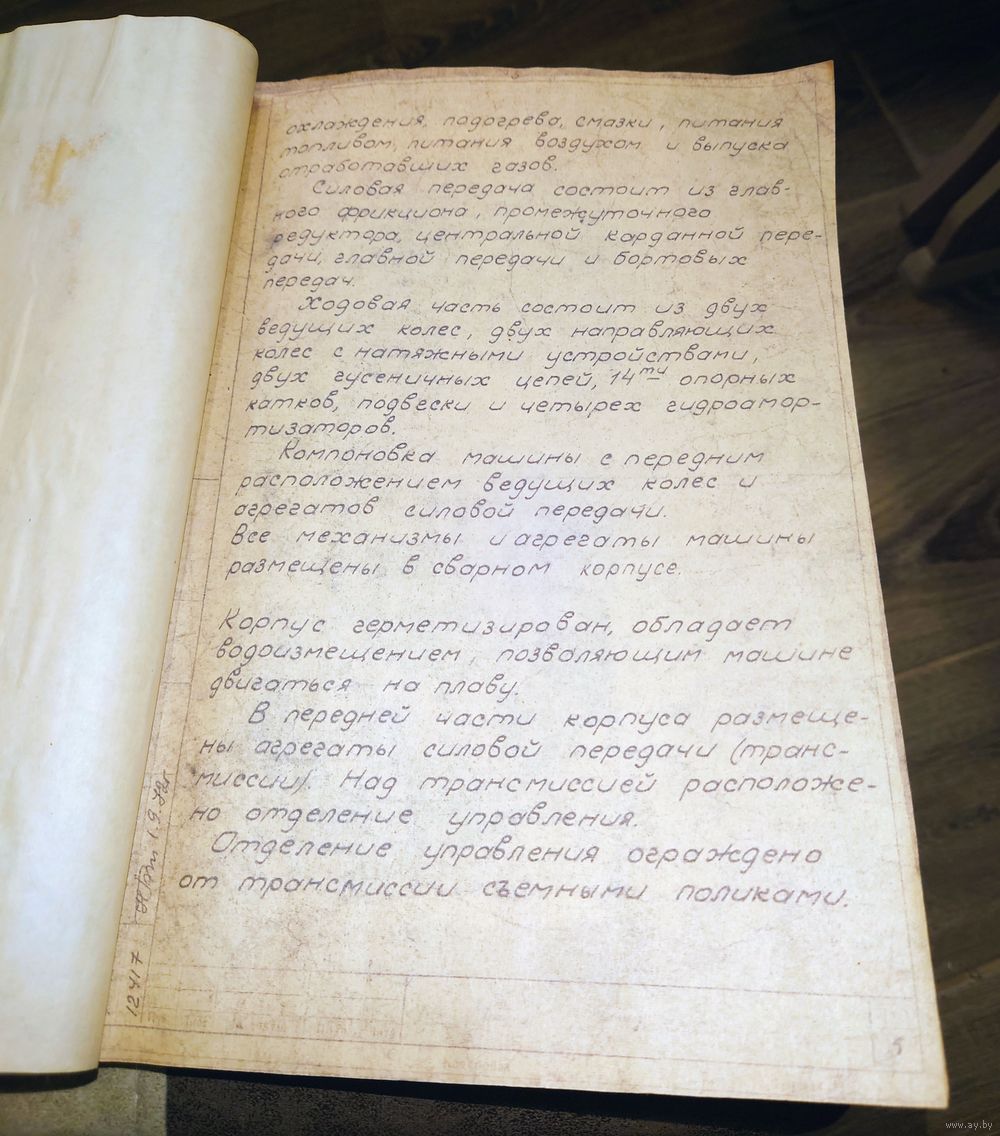 охлаждения, подогрева, смазки, питания
топливом, питания воздухом и выпуска
отработавших газов.
Силовая передача состоит из глав-
ного фрикциона, промежуточного
редуктора, центральной карданной пере-
дачи, главной передачи и бортовых
передач.
Ходовая часть состоит из двух
ведущих колес, двух направляющих
колес с натяжными устройствами,
двух гусеничных цепей, 14ти опорных
катков, подвески и четырех гидроамор-
тизаторов.
Компоновка машины с передним
расположением ведущих колес и
агрегатов силовой передачи.
Все механизмы и агрегаты машины
размещены в сварном корпусе.
Корпус герметизирован, обладает
водоизмещением, позволяющим машине
двигаться на плаву.
В передней части корпуса размеще-
ны агрегаты силовой передачи (транс-
миссии). Над трансмиссией расположе-
но отделение управления.
Отделение управления ограждено
от трансмиссии съемными поликами.
12417
5
www.ay.by